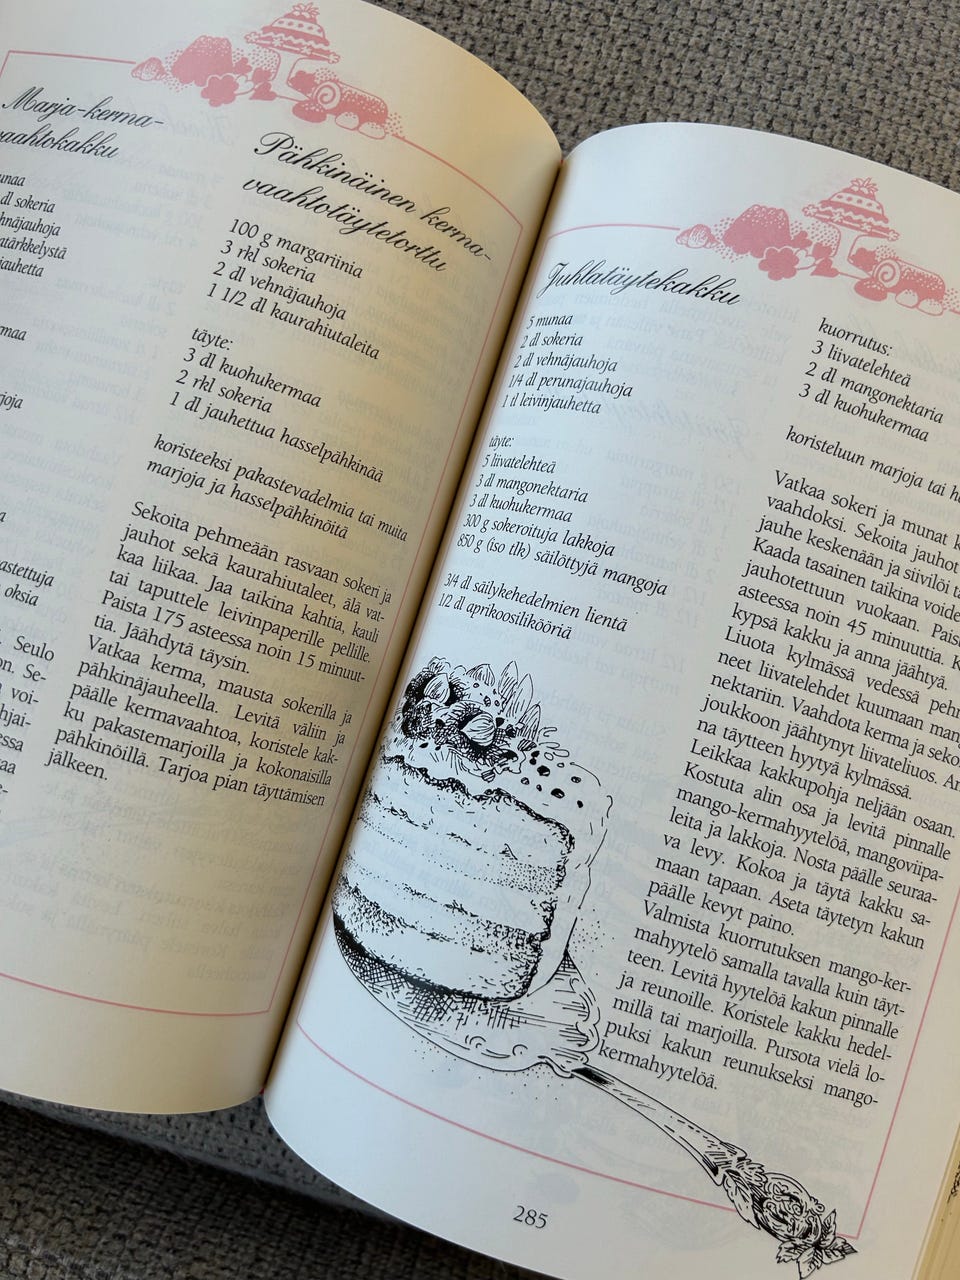 Marja-kerma-
vaahtokakku
munaa
dl sokeria
vehnäjauhoja
jauhetta
Pähkinäinen kerma-
vaahtotäytetorttu
100 g margariinia
3 rkl sokeria
2 dl vehnäjauhoja
1 1/2 dl kaurahiutaleita
täyte:
3 dl kuohukermaa
2 rkl sokeria
1 dl jauhettua hasselpähkinää
koristeeksi pakastevadelmia tai muita
marjoja ja hasselpähkinöitä
Sekoita pehmeään rasvaan sokeri ja
jauhot sekä kaurahiutaleet, älä vat-
kaa liikaa. Jaa taikina kahtia, kauli
tai taputtele leivinpaperille pellille.
Paista 175 asteessa noin 15 minuut-
tia. Jäähdytä täysin.
Vatkaa kerma, mausta sokerilla ja
pähkinäjauheella. Levitä väliin ja
päälle kermavaahtoa, koristele kak-
ku pakastemarjoilla ja kokonaisilla
pähkinöillä. Tarjoa pian täyttämisen
jälkeen.
Juhlatäytekakku
5 munaa
2 dl sokeria
2 dl vehnäjauhoja
1/4 dl perunajauhoja
1 tl leivinjauhetta
täyte:
5 liivatelehteä
3 dl mangonektaria
3 dl kuohukermaa
300 g sokeroituja lakkoja
850 g (iso tlk) säilöttyjä mangoja
3/4 dl säilykehedelmien lientä
1/2 dl aprikoosilikööriä
kuorrutus:
3 liivatelehteä
2 dl mangonektaria
3 dl kuohukermaa
koristeluun marjoja tai
Vatkaa sokeri ja munat
vaahdoksi. Sekoita jauhot
jauhe keskenään ja siivilöi
Kaada tasainen taikina
jauhotettuun vuokaan.
asteessa noin 45 minuuttia.
kypsä kakku ja anna jäähtyä.
Liuota kylmässä vedessä
neet liivatelehdet kuumaan
nektariin. Vaahdota kerma ja
joukkoon jäähtynyt liivateliuos.
na täytteen hyytyä kylmässä.
Leikkaa kakkupohja neljään osaan.
Kostuta alin osa ja levitä pinnalle
mango-kermahyytelöä, mangoviipa-
leita ja lakkoja. Nosta päälle seuraa-
va levy. Kokoa ja täytä kakku sa-
maan tapaan. Aseta täytetyn kakun
päälle kevyt paino.
Valmista kuorrutuksen mango-ker-
mahyytelö samalla tavalla kuin täyt-
teen. Levitä hyytelöä kakun pinnalle
ja reunoille. Koristele kakku hedel-
millä tai marjoilla. Pursota vielä lo-
puksi kakun reunukseksi mango-
kermahyytelöä.
285